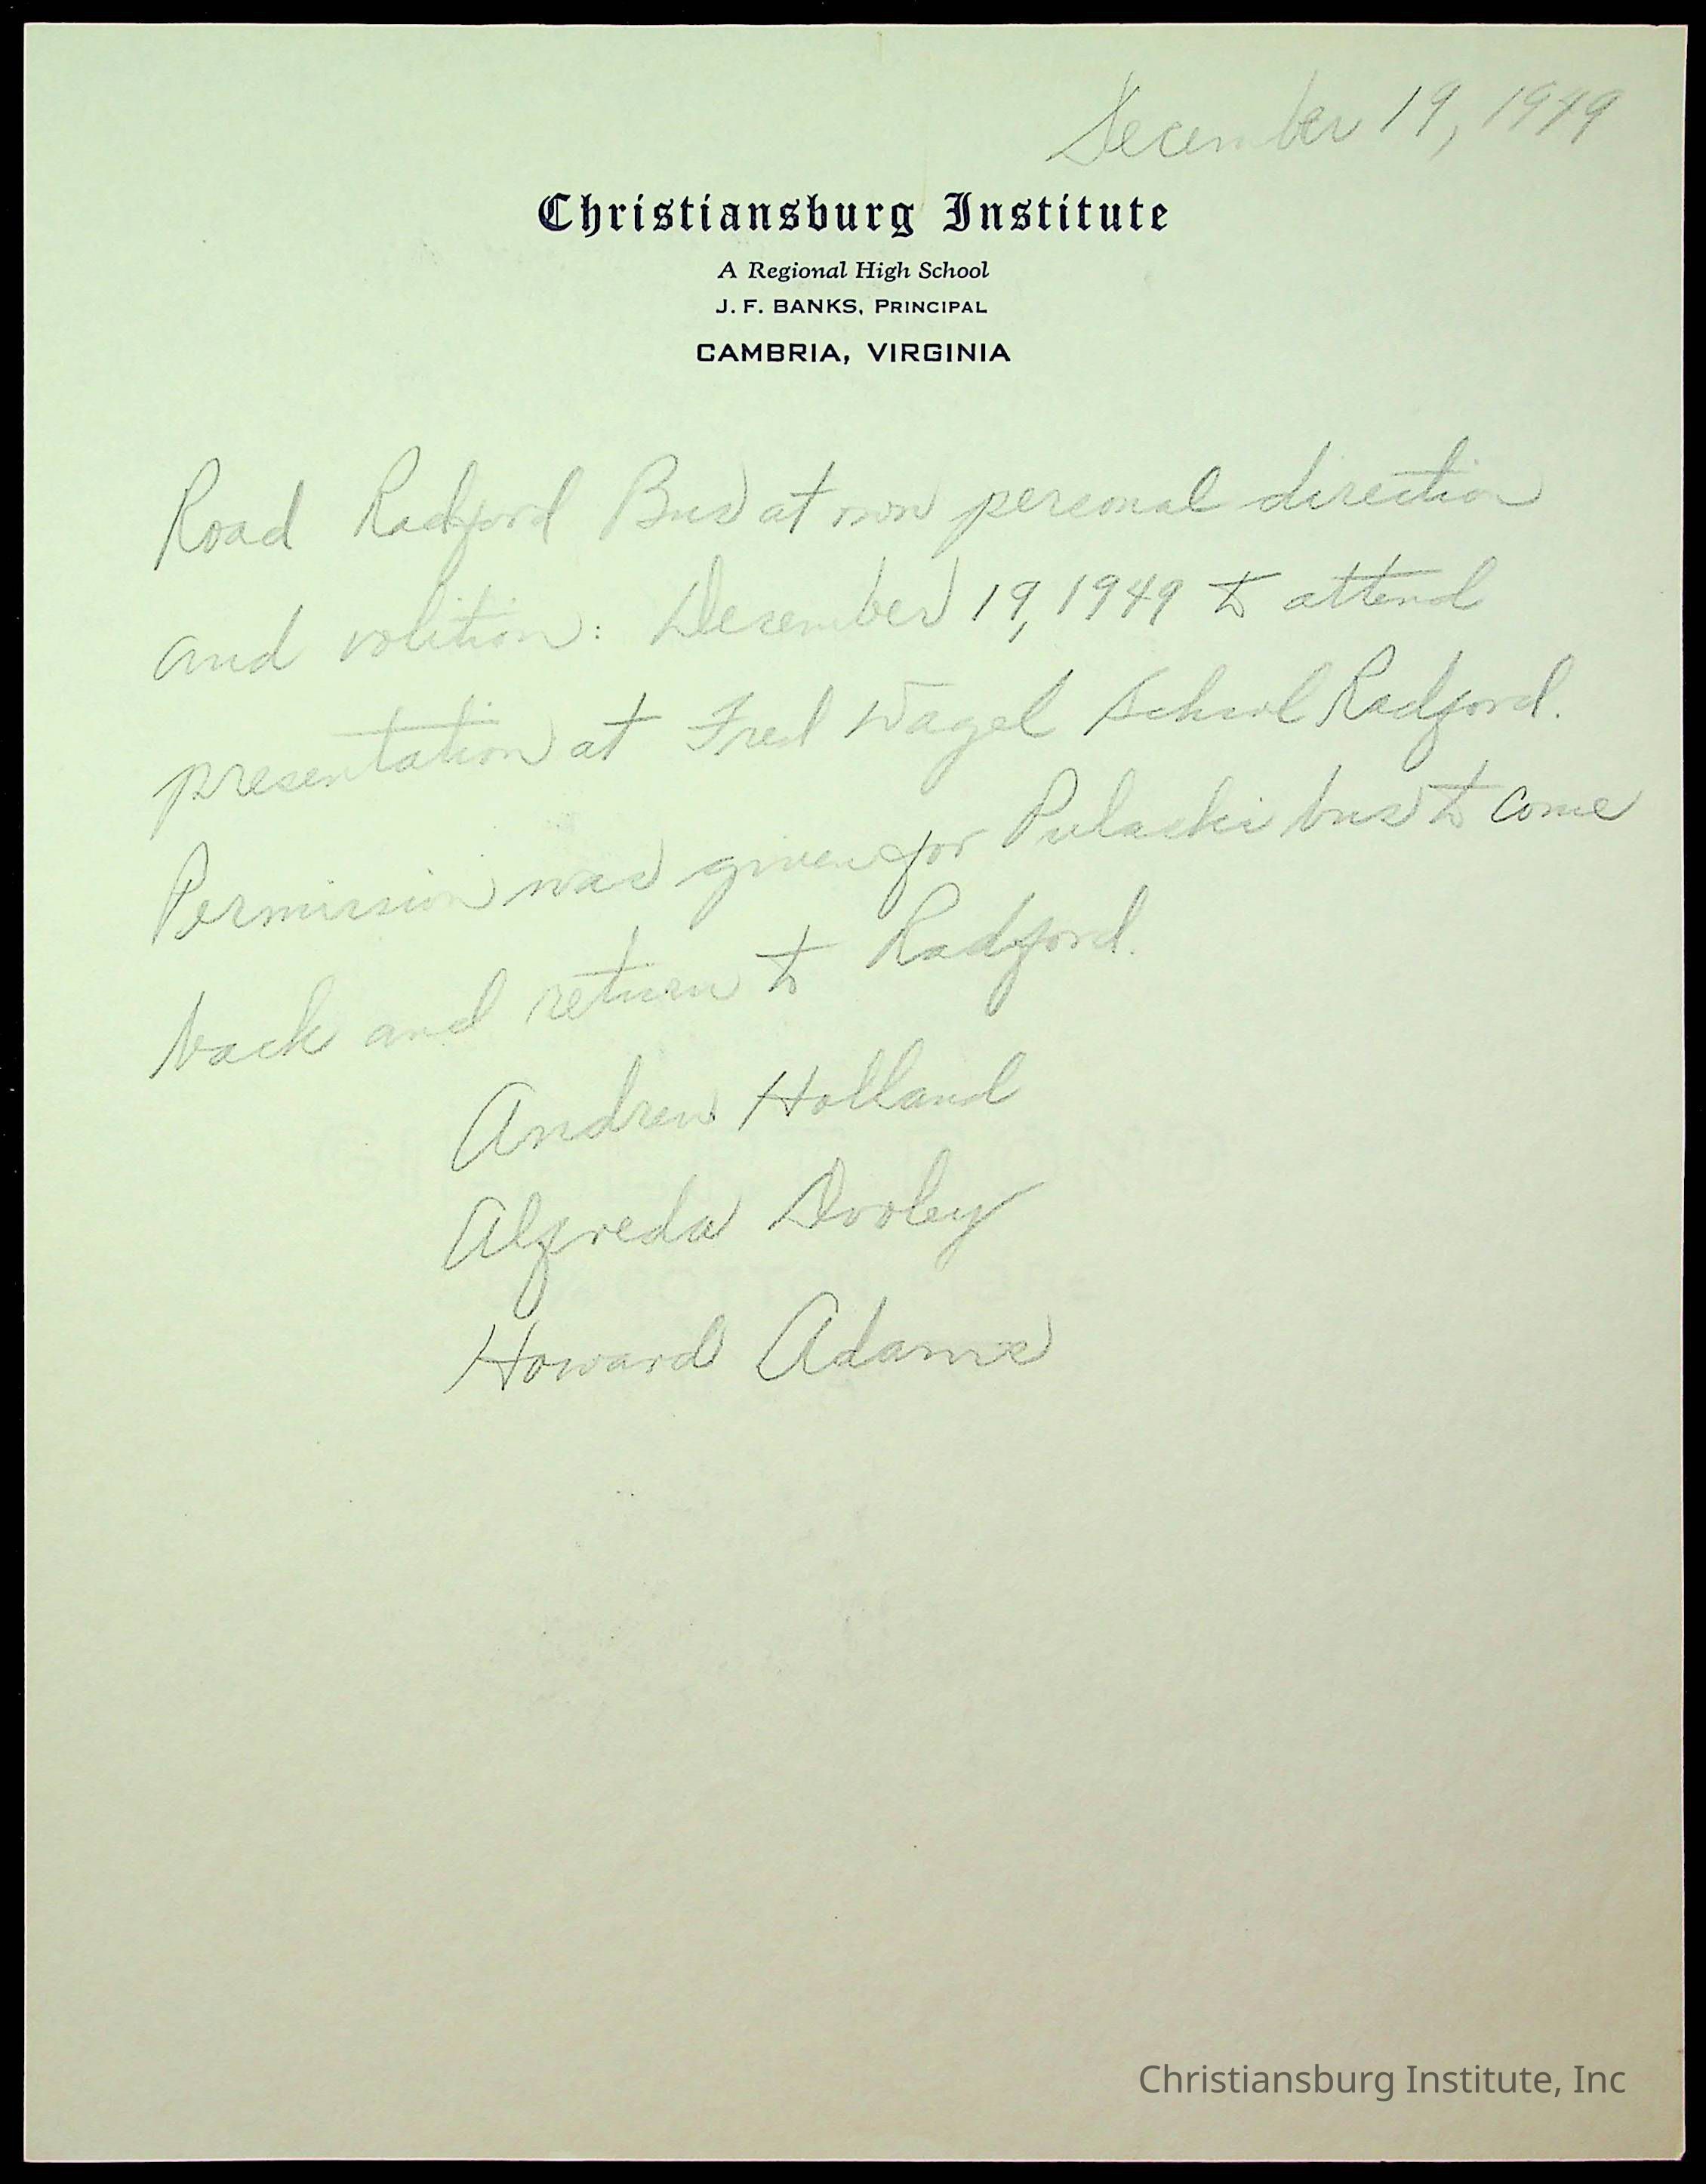 December 19, 1949
Christiansburg Institute
A Regional High School
J. F. BANKS, PRINCIPAL
CAMBRIA, VIRGINIA
Road Radford Bus at own personal direction
and volition: December 19, 1949 to attend
presentation at Fred Wagel School Radford.
Permission was given for Pulaski bus to come
back and return to Radford.
Andrew Holland
Alfreda Dooley
Howard Adams
Christiansburg Institute, Inc